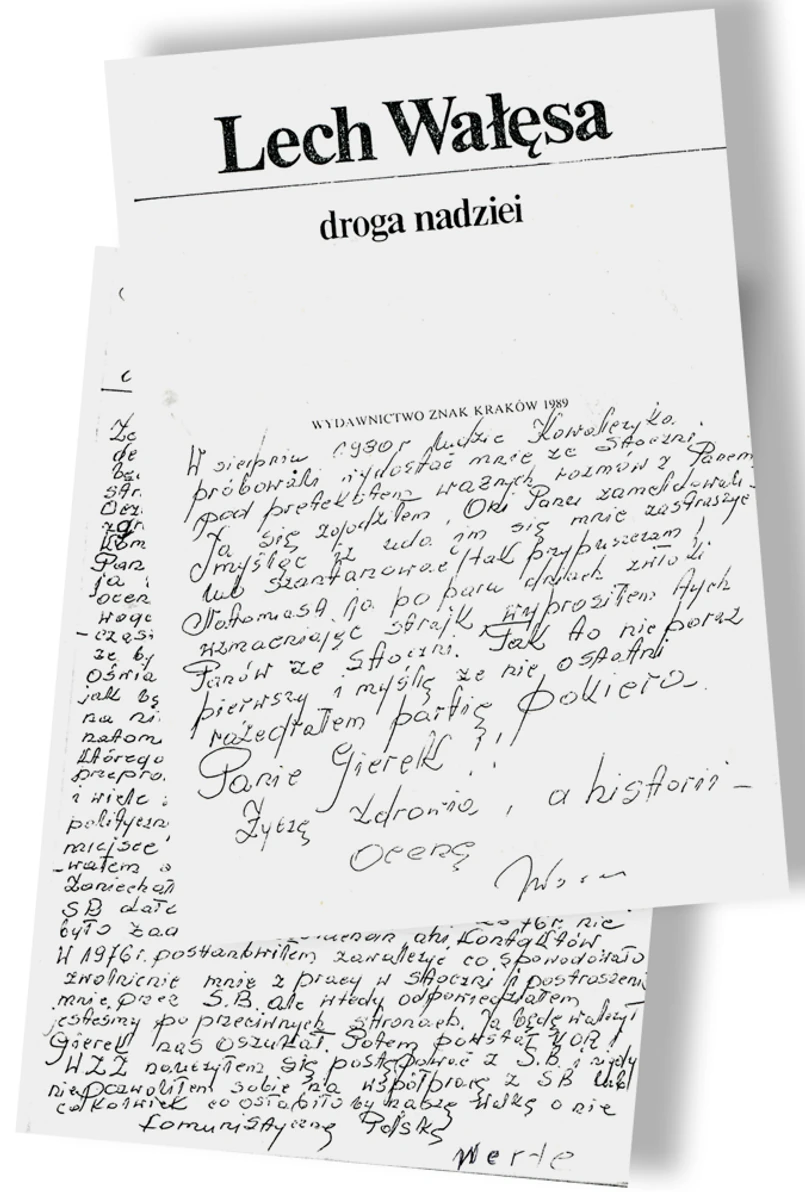 Lech Wałęsa
droga nadziei
WYDAWNICTWO ZNAK KRAKÓW 1989
W sierpniu 1980r ludzie Kowalczyka
próbowali wydostać mnie ze Stoczni.
pod pretekstem ważnych rozmów z Panem
Ja się zgodziłem. Oni Panu zameldowali
myśląc iż uda im się mnie zastraszyć
lub szantarzować /tak przypuszczam/
Natomiast ja po paru dniach zwłoki
wzmacniając strajk wyprosiłem tych
Panów ze Stoczni. Tak to nie poraz
pierwszy i myślę że nie ostatni
rozegrałem partię pokiera
Panie Gierek!
Życzę zdrowia, a historii –
Ocenę
Że
de
str.
Pan
ja
ocen
wogó
– częś
że by
Oświa
jak by
na ni
natom
którego
przepro
i wiele
polityczn
miejsce
– wałem
Zaniechał
SB dale
było żad
76r. nie
kontaktów
W 1976r. postanowiłem zawalczyć co spowodowało
zwolnienie mnie z pracy w stoczni i postraszenie
mnie przez S.B. ale wtedy odpowiedziałem
jesteśmy po przeciwnych stronach. Ja będę walczył
Gierek nas oszukał. Potem powstał KOR i
WZZ nauczyłem się postępować z S.B i nigdy
nie pozwoliłem sobie na współpracę z SB lub
cokolwiek co osłabiło by naszą walkę o nie
komunistyczną Polskę